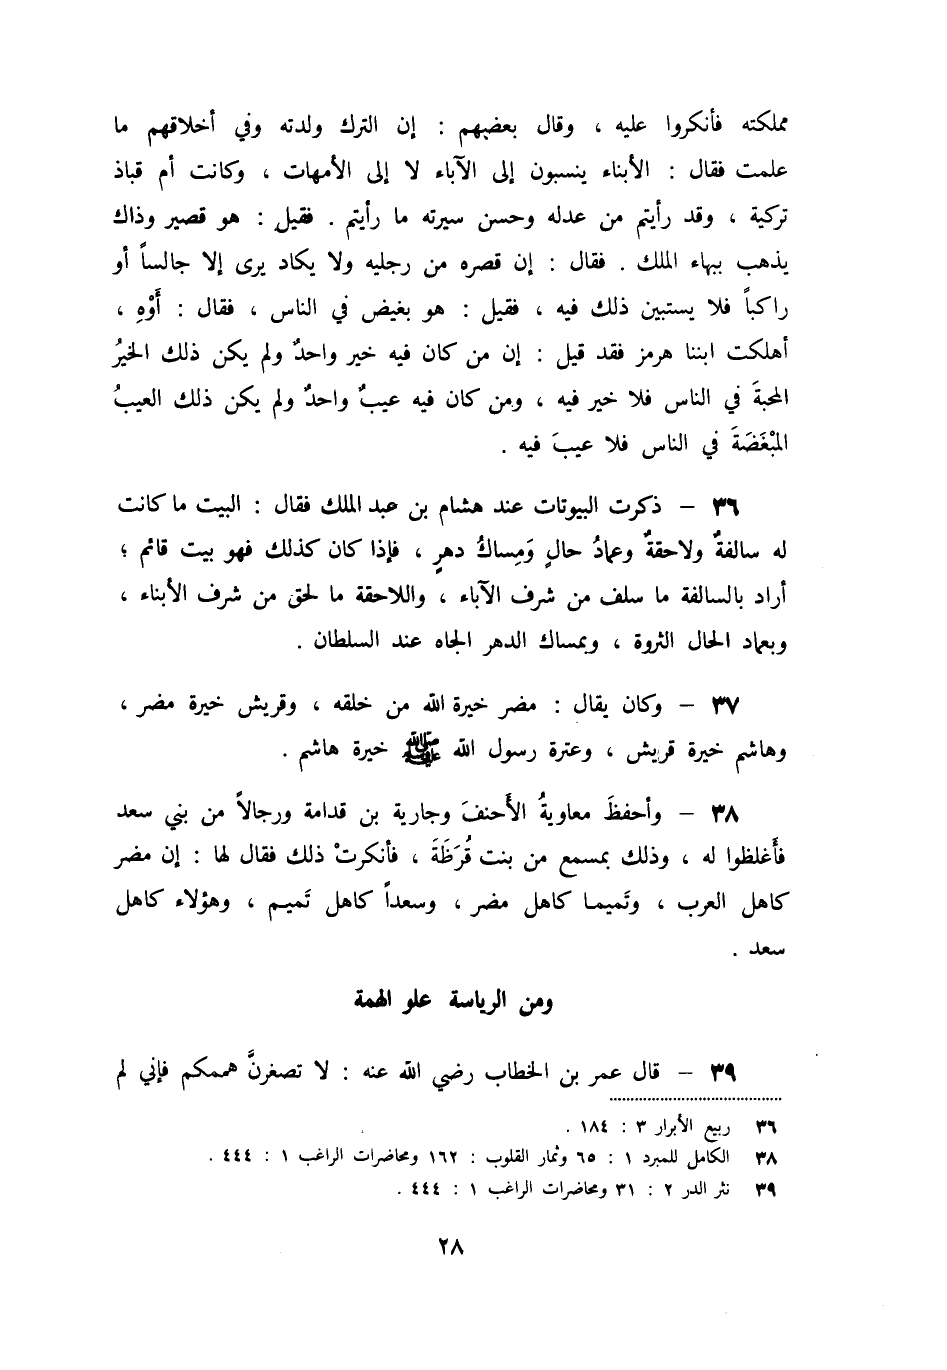 مملكته فأنكروا عليه ، وقال بعضهم : إن الترك ولدته وفي أخلاقهم ما
علمت فقال : الأبناء ينسبون إلى الآباء لا إلى الأمهات ، وكانت أم قباذ
تركية ، وقد رأيتم من عدله وحسن سيرته ما رأيتم . فقيل : هو قصير وذاك
يذهب ببهاء الملك . فقال : إن قصره من رجليه ولا يكاد يرى إلا جالساً أو
راكباً فلا يستبين ذلك فيه ، فقيل : هو بغيض في الناس ، فقال : أَوْهِ ،
أهلكت ابننا هرمز فقد قيل : إن من كان فيه خير واحدٌ ولم يكن ذلك الخيرُ
المحبةَ في الناس فلا خير فيه ، ومن كان فيه عيبٌ واحدٌ ولم يكن ذلك العيبُ
المبْغَضَةَ في الناس فلا عيبَ فيه .
٣٦ - ذكرت البيوتات عند هشام بن عبد الملك فقال : البيت ما كانت
له سالفةٌ ولاحقةٌ وعمادُ حالٍ وَمِساكُ دهرٍ ، فإذا كان كذلك فهو بيت قائم ؛
أراد بالسالفة ما سلف من شرف الآباء ، واللاحقة ما لحق من شرف الأبناء ،
وبعماد الحال الثروة ، وبمساك الدهر الجاه عند السلطان .
٣٧ - وكان يقال : مضر خيرة الله من خلقه ، وقريش خيرة مضر ،
وهاشم خيرة قريش ، وعترة رسول الله ﷺ خيرة هاشم .
٣٨ - وأحفظَ معاويةُ الأَحنفَ وجارية بن قدامة ورجالاً من بني سعد
فأَغلظوا له ، وذلك بمسمع من بنت قُرَظَةَ ، فأنكرتْ ذلك فقال لها : إن مضر
كاهل العرب ، وتَميما كاهل مضر ، وسعداً كاهل تَميم ، وهؤلاء كاهل
سعد .
ومن الرياسة علو الهمة
٣٩ - قال عمر بن الخطاب رضي الله عنه : لا تصغرنَّ هممكم فإني لم
٣٦ ربيع الأبرار ٣ : ١٨٤ .
٣٨ الكامل للمبرد ١ : ٦٥ وثمار القلوب : ١٦٢ ومحاضرات الراغب ١ : ٤٤٤ .
٣٩ نثر الدر ٢ : ٣١ ومحاضرات الراغب ١ : ٤٤٤ .
٢٨